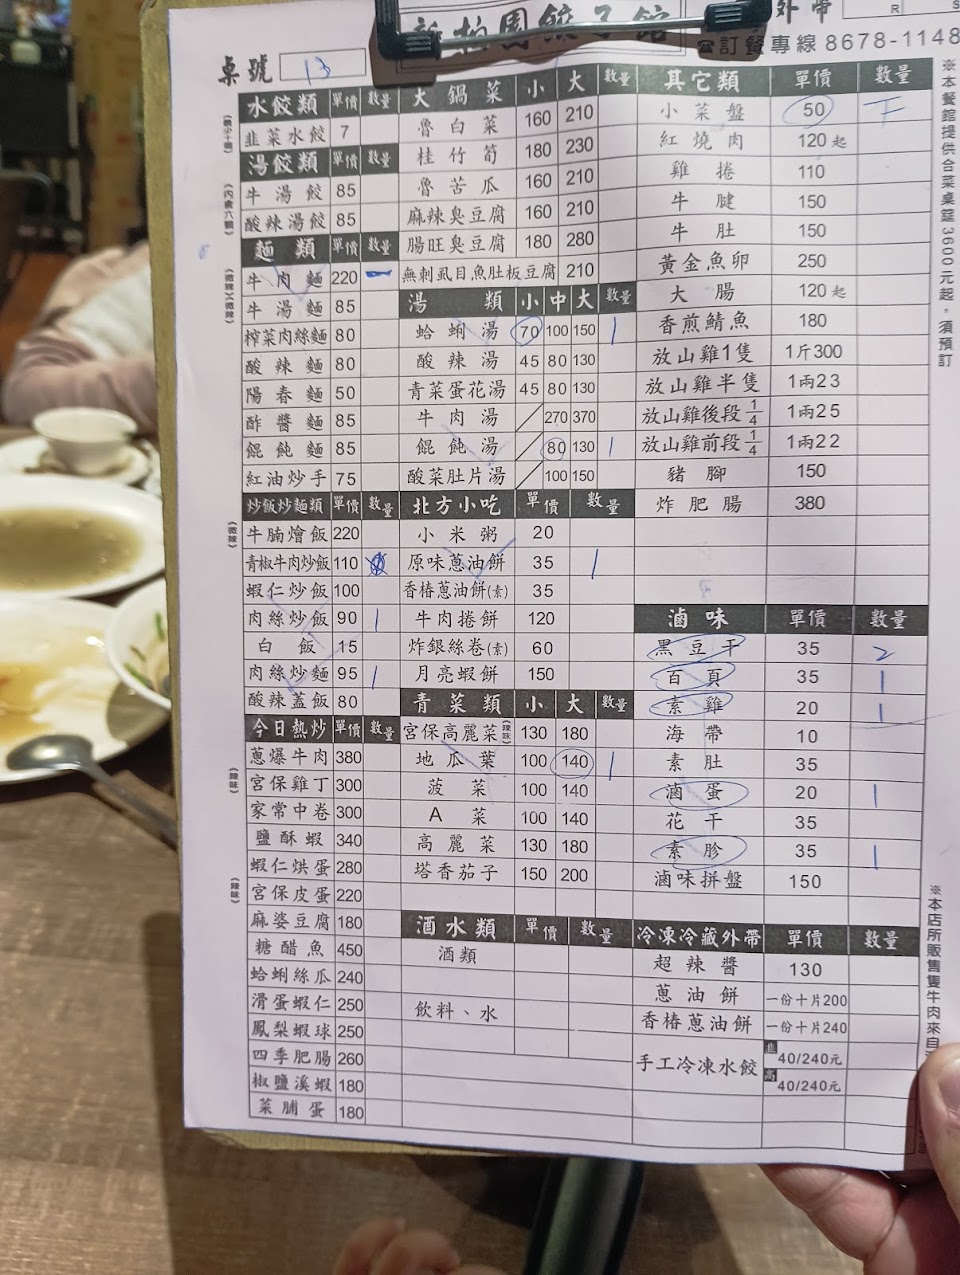 外帶
柏園餃子館
☎訂餐專線8678-1148
桌號 13
水餃類 單價 數量
韭菜水餃 7
湯餃類 單價 數量
牛湯餃 85
酸辣湯餃 85
麵類 單價 數量
牛肉麵 220 一
牛湯麵 85
榨菜肉絲麵 80
酸辣麵 80
陽春麵 50
酢醬麵 85
餛飩麵 85
紅油炒手 75
炒飯炒麵類 單價 數量
牛腩燴飯 220
青椒牛肉炒飯 110
蝦仁炒飯 100
肉絲炒飯 90 1
白飯 15
肉絲炒麵 95 1
酸辣蓋飯 80
今日熱炒 單價 數量
蔥爆牛肉 380
宮保雞丁 300
家常中卷 300
鹽酥蝦 340
蝦仁烘蛋 280
宮保皮蛋 220
麻婆豆腐 180
糖醋魚 450
蛤蜊絲瓜 240
滑蛋蝦仁 250
鳳梨蝦球 250
四季肥腸 260
椒鹽溪蝦 180
菜脯蛋 180
大鍋菜 小 大 數量
魯白菜 160 210
桂竹筍 180 230
魯苦瓜 160 210
麻辣臭豆腐 160 210
腸旺臭豆腐 180 280
無刺虱目魚肚板豆腐 210
湯類 小 中 大 數量
蛤蜊湯 70 100 150 1
酸辣湯 45 80 130
青菜蛋花湯 45 80 130
牛肉湯 270 370
餛飩湯 80 130 1
酸菜肚片湯 100 150
北方小吃 單價 數量
小米粥 20
原味蔥油餅 35 1
香椿蔥油餅(素) 35
牛肉捲餅 120
炸銀絲卷(素) 60
月亮蝦餅 150
青菜類 小 大 數量
宮保高麗菜(辣味) 130 180
地瓜葉 100 140 1
菠菜 100 140
A菜 100 140
高麗菜 130 180
塔香茄子 150 200
酒水類 單價 數量
酒類
飲料、水
其它類 單價 數量
小菜盤 50 下
紅燒肉 120起
雞捲 110
牛腱 150
牛肚 150
黃金魚卵 250
大腸 120起
香煎鯖魚 180
放山雞1隻 1斤300
放山雞半隻 1兩23
放山雞後段1/4 1兩25
放山雞前段1/4 1兩22
豬腳 150
炸肥腸 380
滷味 單價 數量
黑豆干 35 2
百頁 35 1
素雞 20 1
海帶 10
素肚 35
滷蛋 20 1
花干 35
素胗 35 1
滷味拼盤 150
冷凍冷藏外帶 單價 數量
超辣醬 130
蔥油餅 一份十片200
香椿蔥油餅 一份十片240
手工冷凍水餃 韭 40/240元
高 40/240元
※本餐館提供合菜桌筵3600元起，須預訂
※本店所販售隻牛肉來自
(微辣)
(辣味)
(辣味)